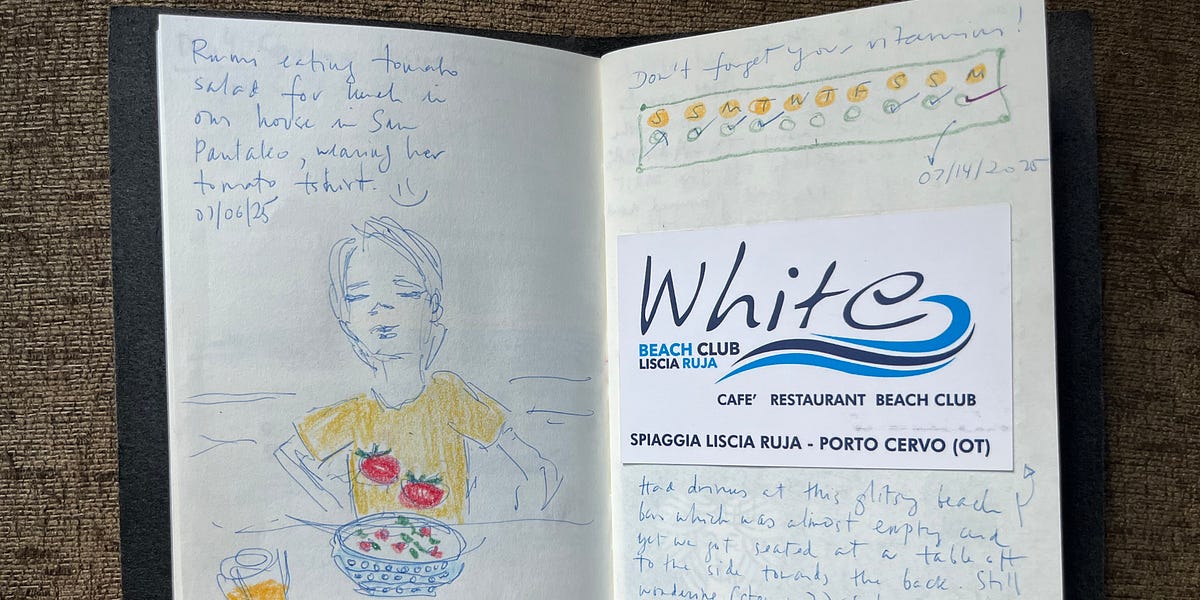 Rumi eating tomato
salad for lunch in
our house in San
Pantaleo, wearing her
tomato tshirt.
07/06/25
Don't forget your vitamins!
S S M T W T F S S M
07/14/2025
White
BEACH CLUB
LISCIA RUJA
CAFE' RESTAURANT BEACH CLUB
SPIAGGIA LISCIA RUJA - PORTO CERVO (OT)
Had drinks at this glitzy beach
bar which was almost empty and
yet we got seated at a table off
to the side towards the back. Still
wondering